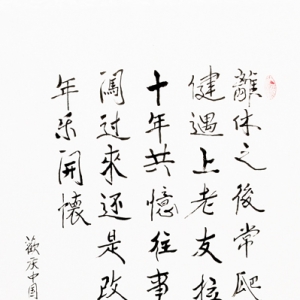 離休之後常爬
健遇上老友
十年共憶往事
闖过來还是改
年乐開懷
歡庆中国